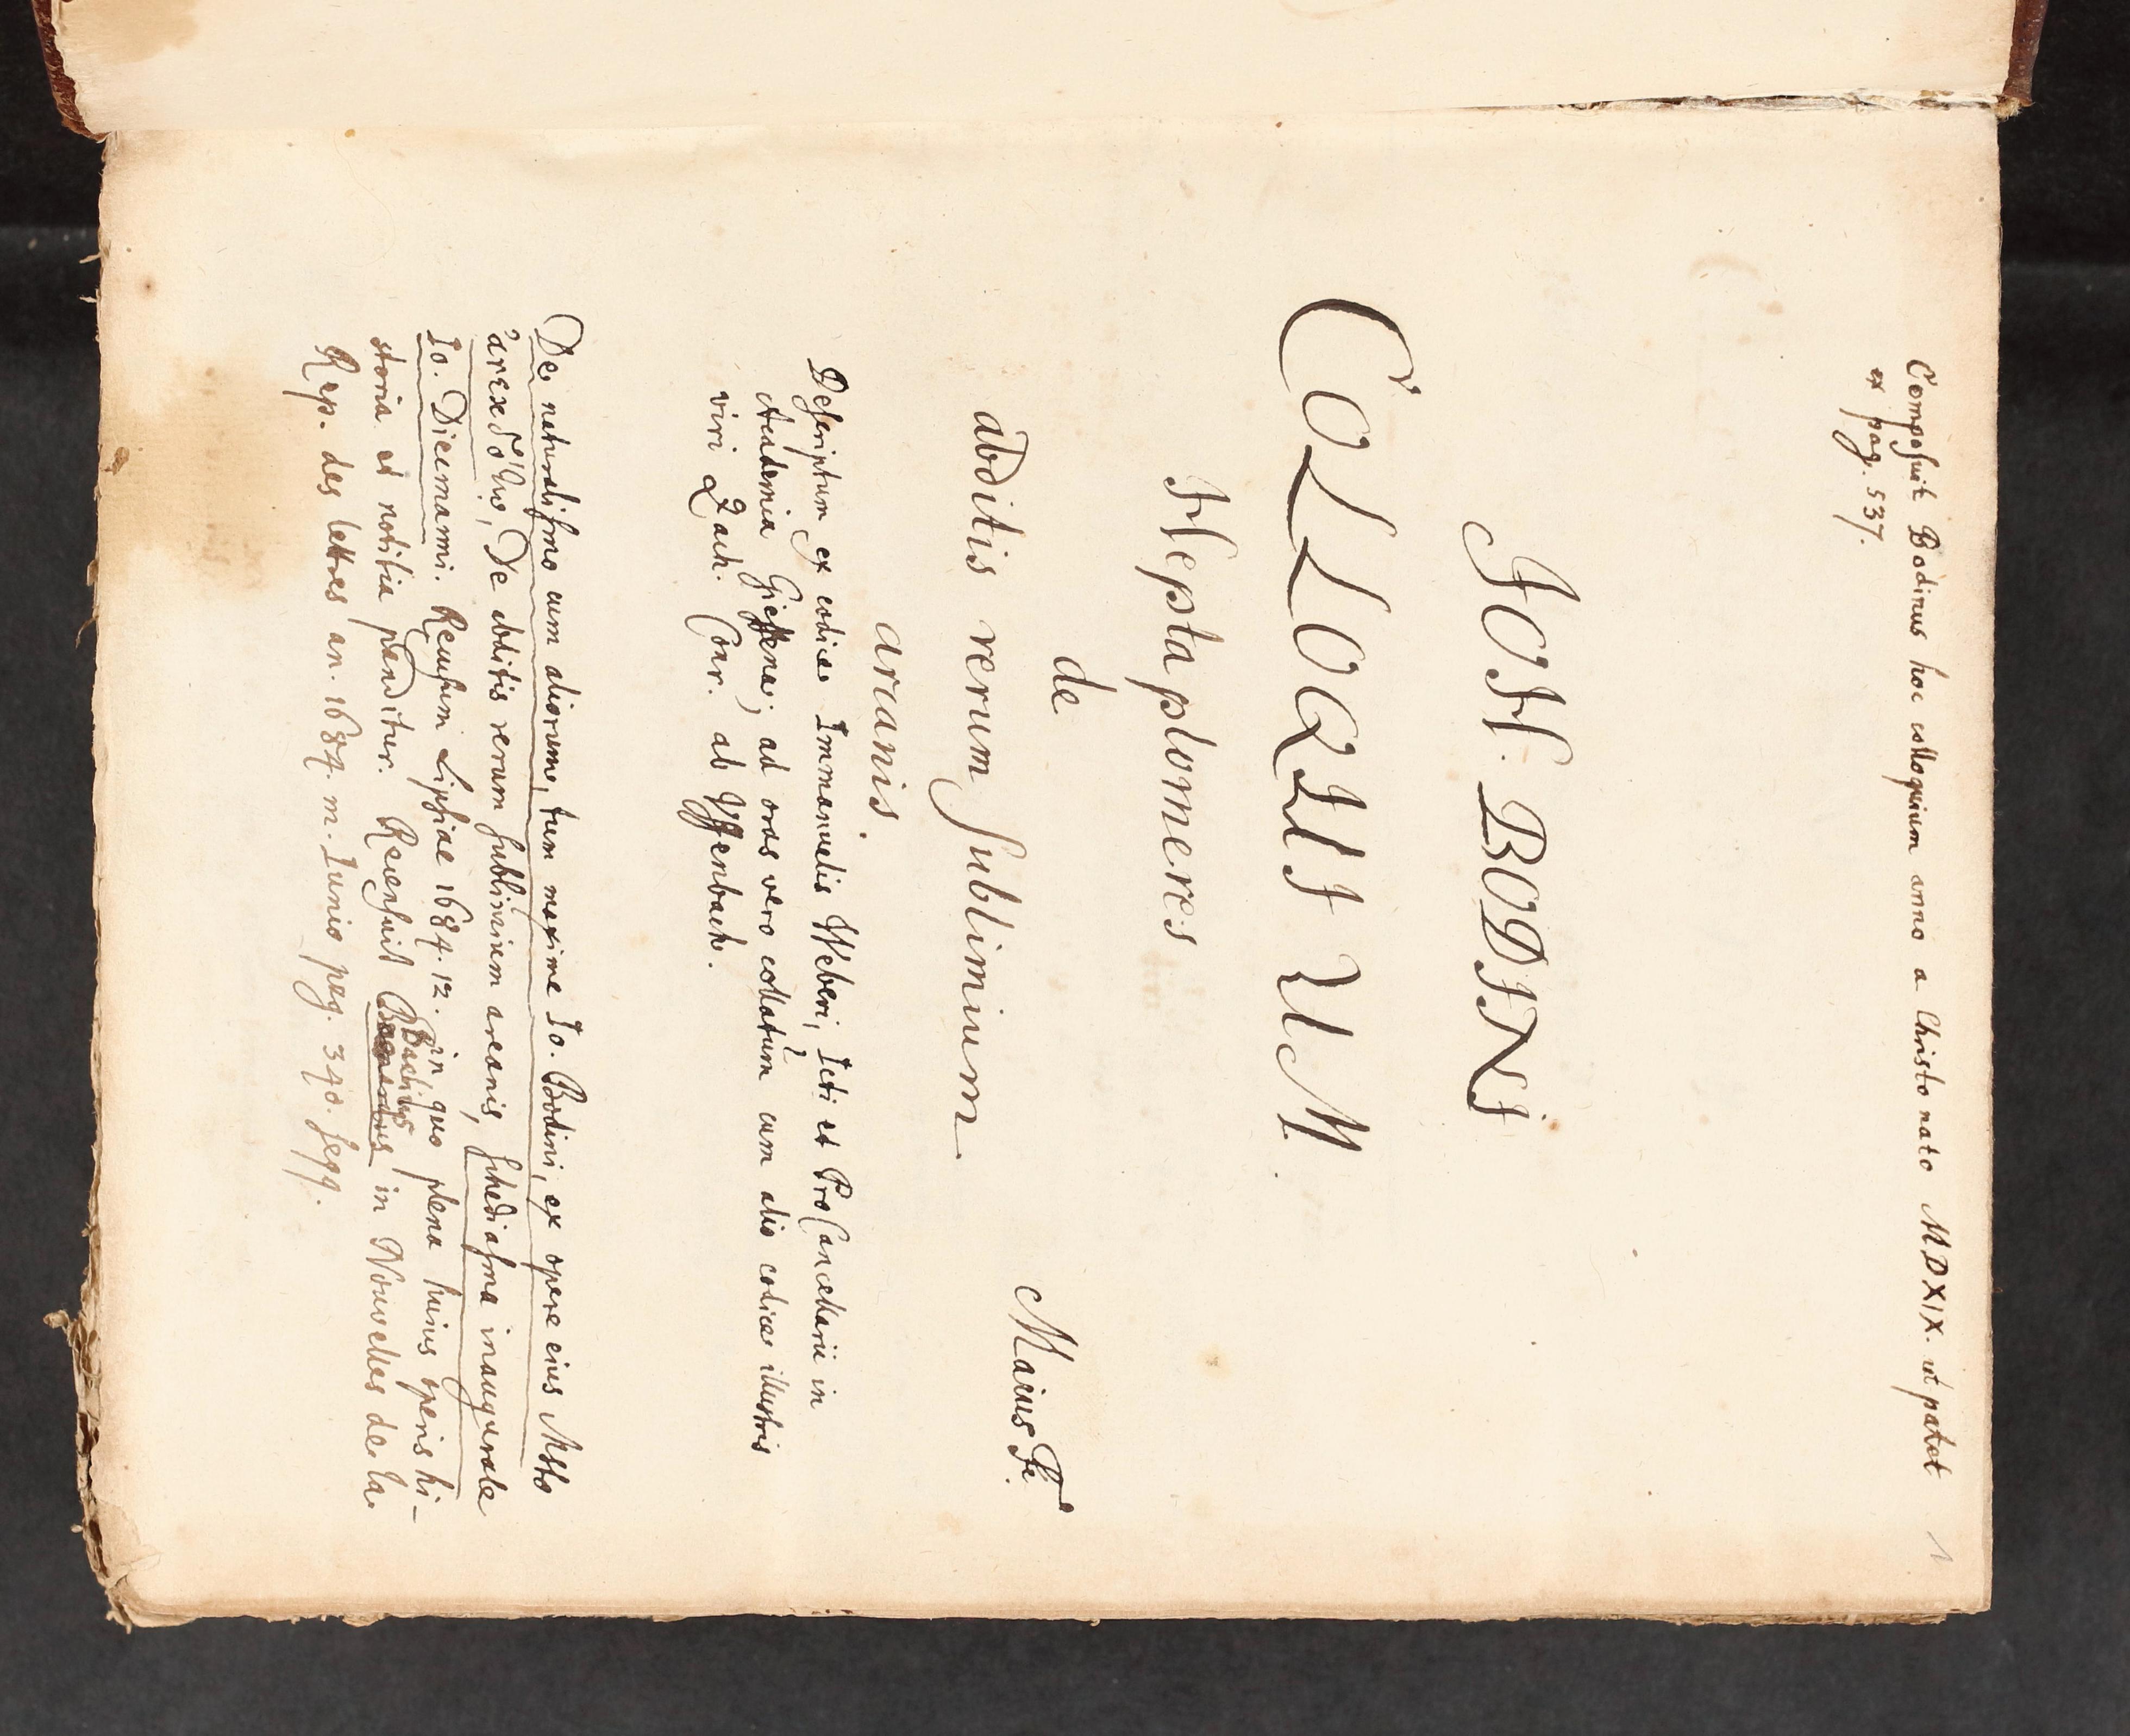 1
Composuit Bodinus hoc colloquium anno a Christo nato MDXIX. ut patet
ex pag. 537.
JOH. BODINI
COLLOQUIUM
Heptaplomeres
de
abditis rerum sublimium
arcanis.
Maius Fr.
Descriptum ex codice Immanuelis Weberi, Icti et ProCancellarii in
Academia Giessena; ad oras vero collatum cum alio codice illustris
viri Zach. Conr. ab Uffenbach.
De naturalismo cum aliorum, tum maxime Io. Bodini, ex opere eius Msto
ἀνεκδότῳ, De abditis rerum sublimium arcanis, schediasma inaugurale
Io. Diecmanni. Recusum Lipsiae 1684. 12. in quo plena huius operis hi-
storia et notitia panditur. Recensuit Baelius in Nouvelles de la
Rep. des lettres an. 1684. m. Iunio pag. 340. seqq.